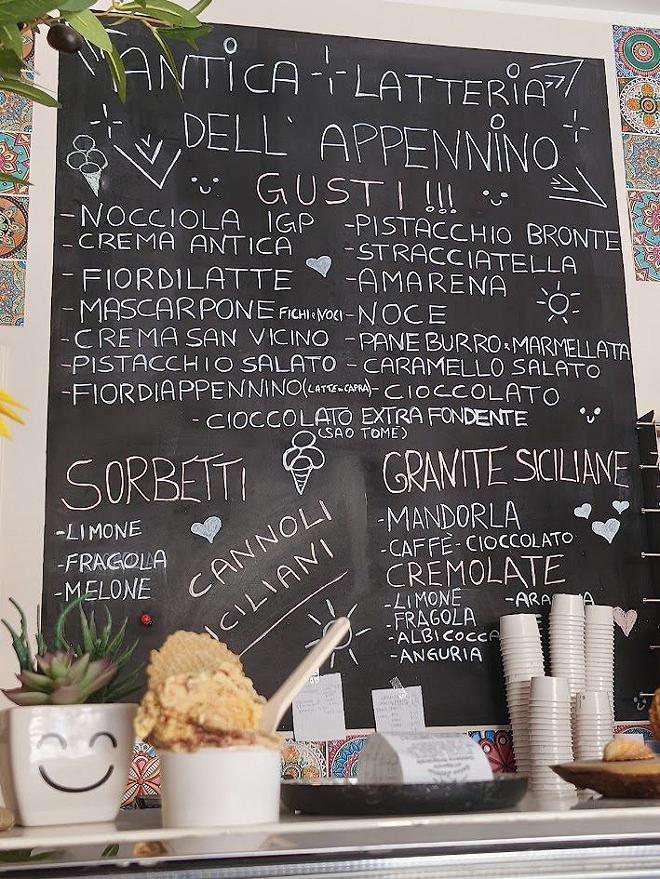 ANTICA LATTERIA
DELL' APPENNINO
GUSTI!!!
-NOCCIOLA IGP
-CREMA ANTICA
-FIORDILATTE
-MASCARPONE FICHI e NOCI
-CREMA SAN VICINO
-PISTACCHIO SALATO
-FIORDIAPPENNINO (LATTE DI CAPRA)
-PISTACCHIO BRONTE
-STRACCIATELLA
-AMARENA
-NOCE
-PANE BURRO e MARMELLATA
-CARAMELLO SALATO
-CIOCCOLATO
-CIOCCOLATO EXTRA FONDENTE
(SAO TOME)
SORBETTI
-LIMONE
-FRAGOLA
-MELONE
CANNOLI
SICILIANI
GRANITE SICILIANE
-MANDORLA
-CAFFE-CIOCCOLATO
CREMOLATE
-LIMONE
-FRAGOLA
-ALBICOCCA
-ANGURIA